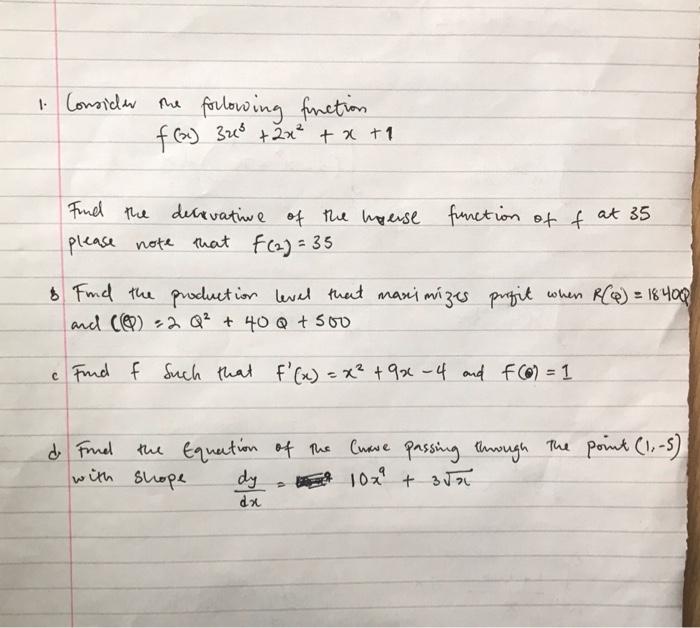 1. Consider the following function
f(x) 3x³ + 2x² + x + 1
Find the derivative of the inverse function of f at 35
please note that f(2) = 35
b Find the production level that maximizes profit when R(Q) = 1840Q
and C(Q) = 2Q² + 40Q + 500
c Find f Such that f'(x) = x² + 9x - 4 and f(0) = 1
d. Find the Equation of the Curve passing through the point (1, -5)
with slope dy/dx = 10x⁹ + 3√x